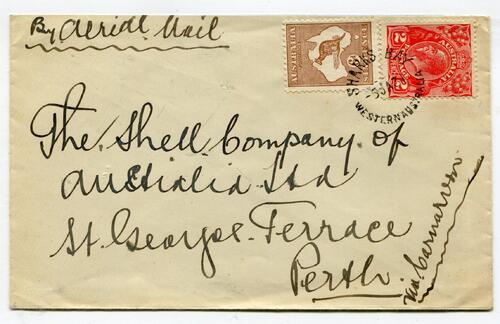 By Aerial Mail
AUSTRALIA
2
AUSTRALIA
2
SHARKS BAY
WESTERN AUSTRALIA
The Shell Company of
Australia Ltd
St. Georges Terrace
Perth.
via Carnarvon